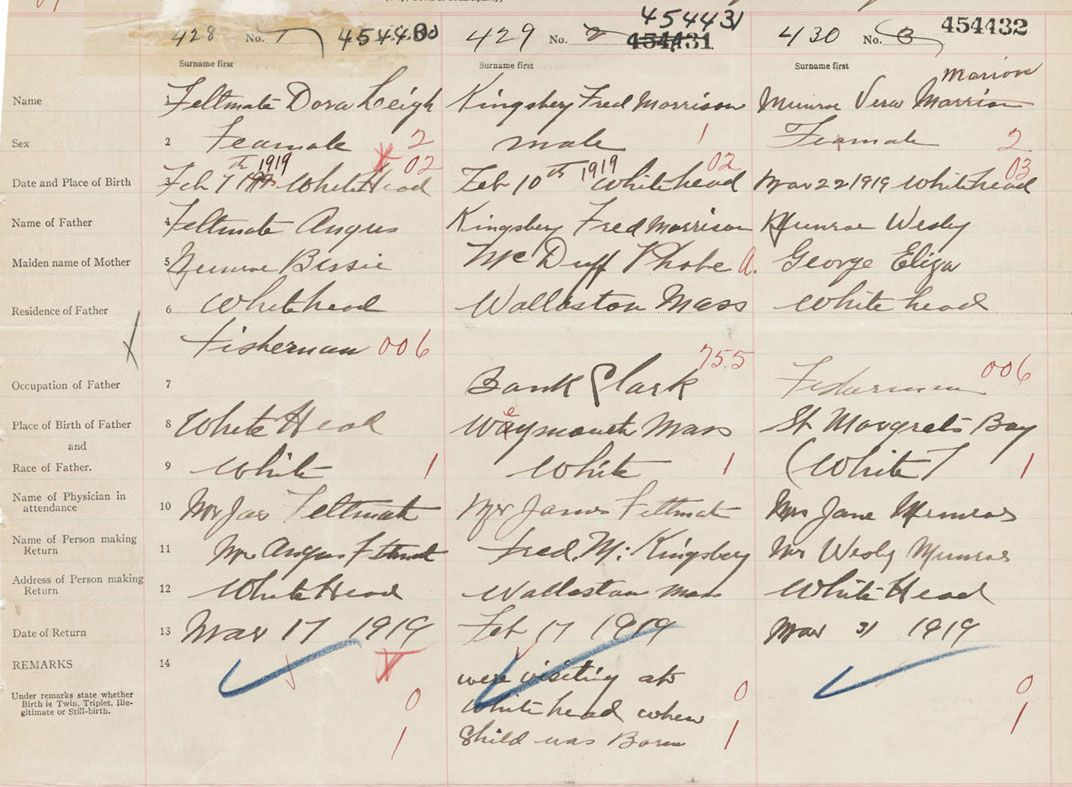 428 No. 1 454430 429 No. 2 454431 454431 430 No. 3 454432
Surname first Surname first Surname first
Marion
Name 1 Feltmate Dora Leigh Kingsbery Fred Morrison Munroe Vera Marrion
Sex 2 Feamale 2 male 1 Feamale 2
02 02 03
Date and Place of Birth 3 Feb 7th 1919 White Head Feb 10th 1919 Whitehead Mar 22 1919 Whitehead
Name of Father 4 Feltmate Angus Kingsbery Fred Morrison Munroe Wesly
Maiden name of Mother 5 Munroe Bessie McDuff Phobe A. George Eliza
Residence of Father 6 Whitehead Wallaston Mass White head
Fisherman 006 755 006
Occupation of Father 7 Bank Clark Fisherman
Place of Birth of Father 8 White Head Weymouth Mass St Margrets Bay
and
Race of Father. 9 White 1 White 1 (White) 1
Name of Physician in
attendance 10 Mrs Jas Feltmate Mrs James Feltmate Mrs Jane Munroe
Name of Person making
Return 11 Mr Angus Feltmate Fred. M. Kingsbery Mr Wesly Munroe
Address of Person making
Return 12 White Head Wallastan Mass White Head
Date of Return 13 Mar 17 1919 Feb 17 1919 Mar 31 1919
REMARKS 14 were visiting at
Under remarks state whether
Birth is Twin, Triplet, Ille-
gitimate or Still-birth. 0 White head when 0 0
1 Child was Born 1 1